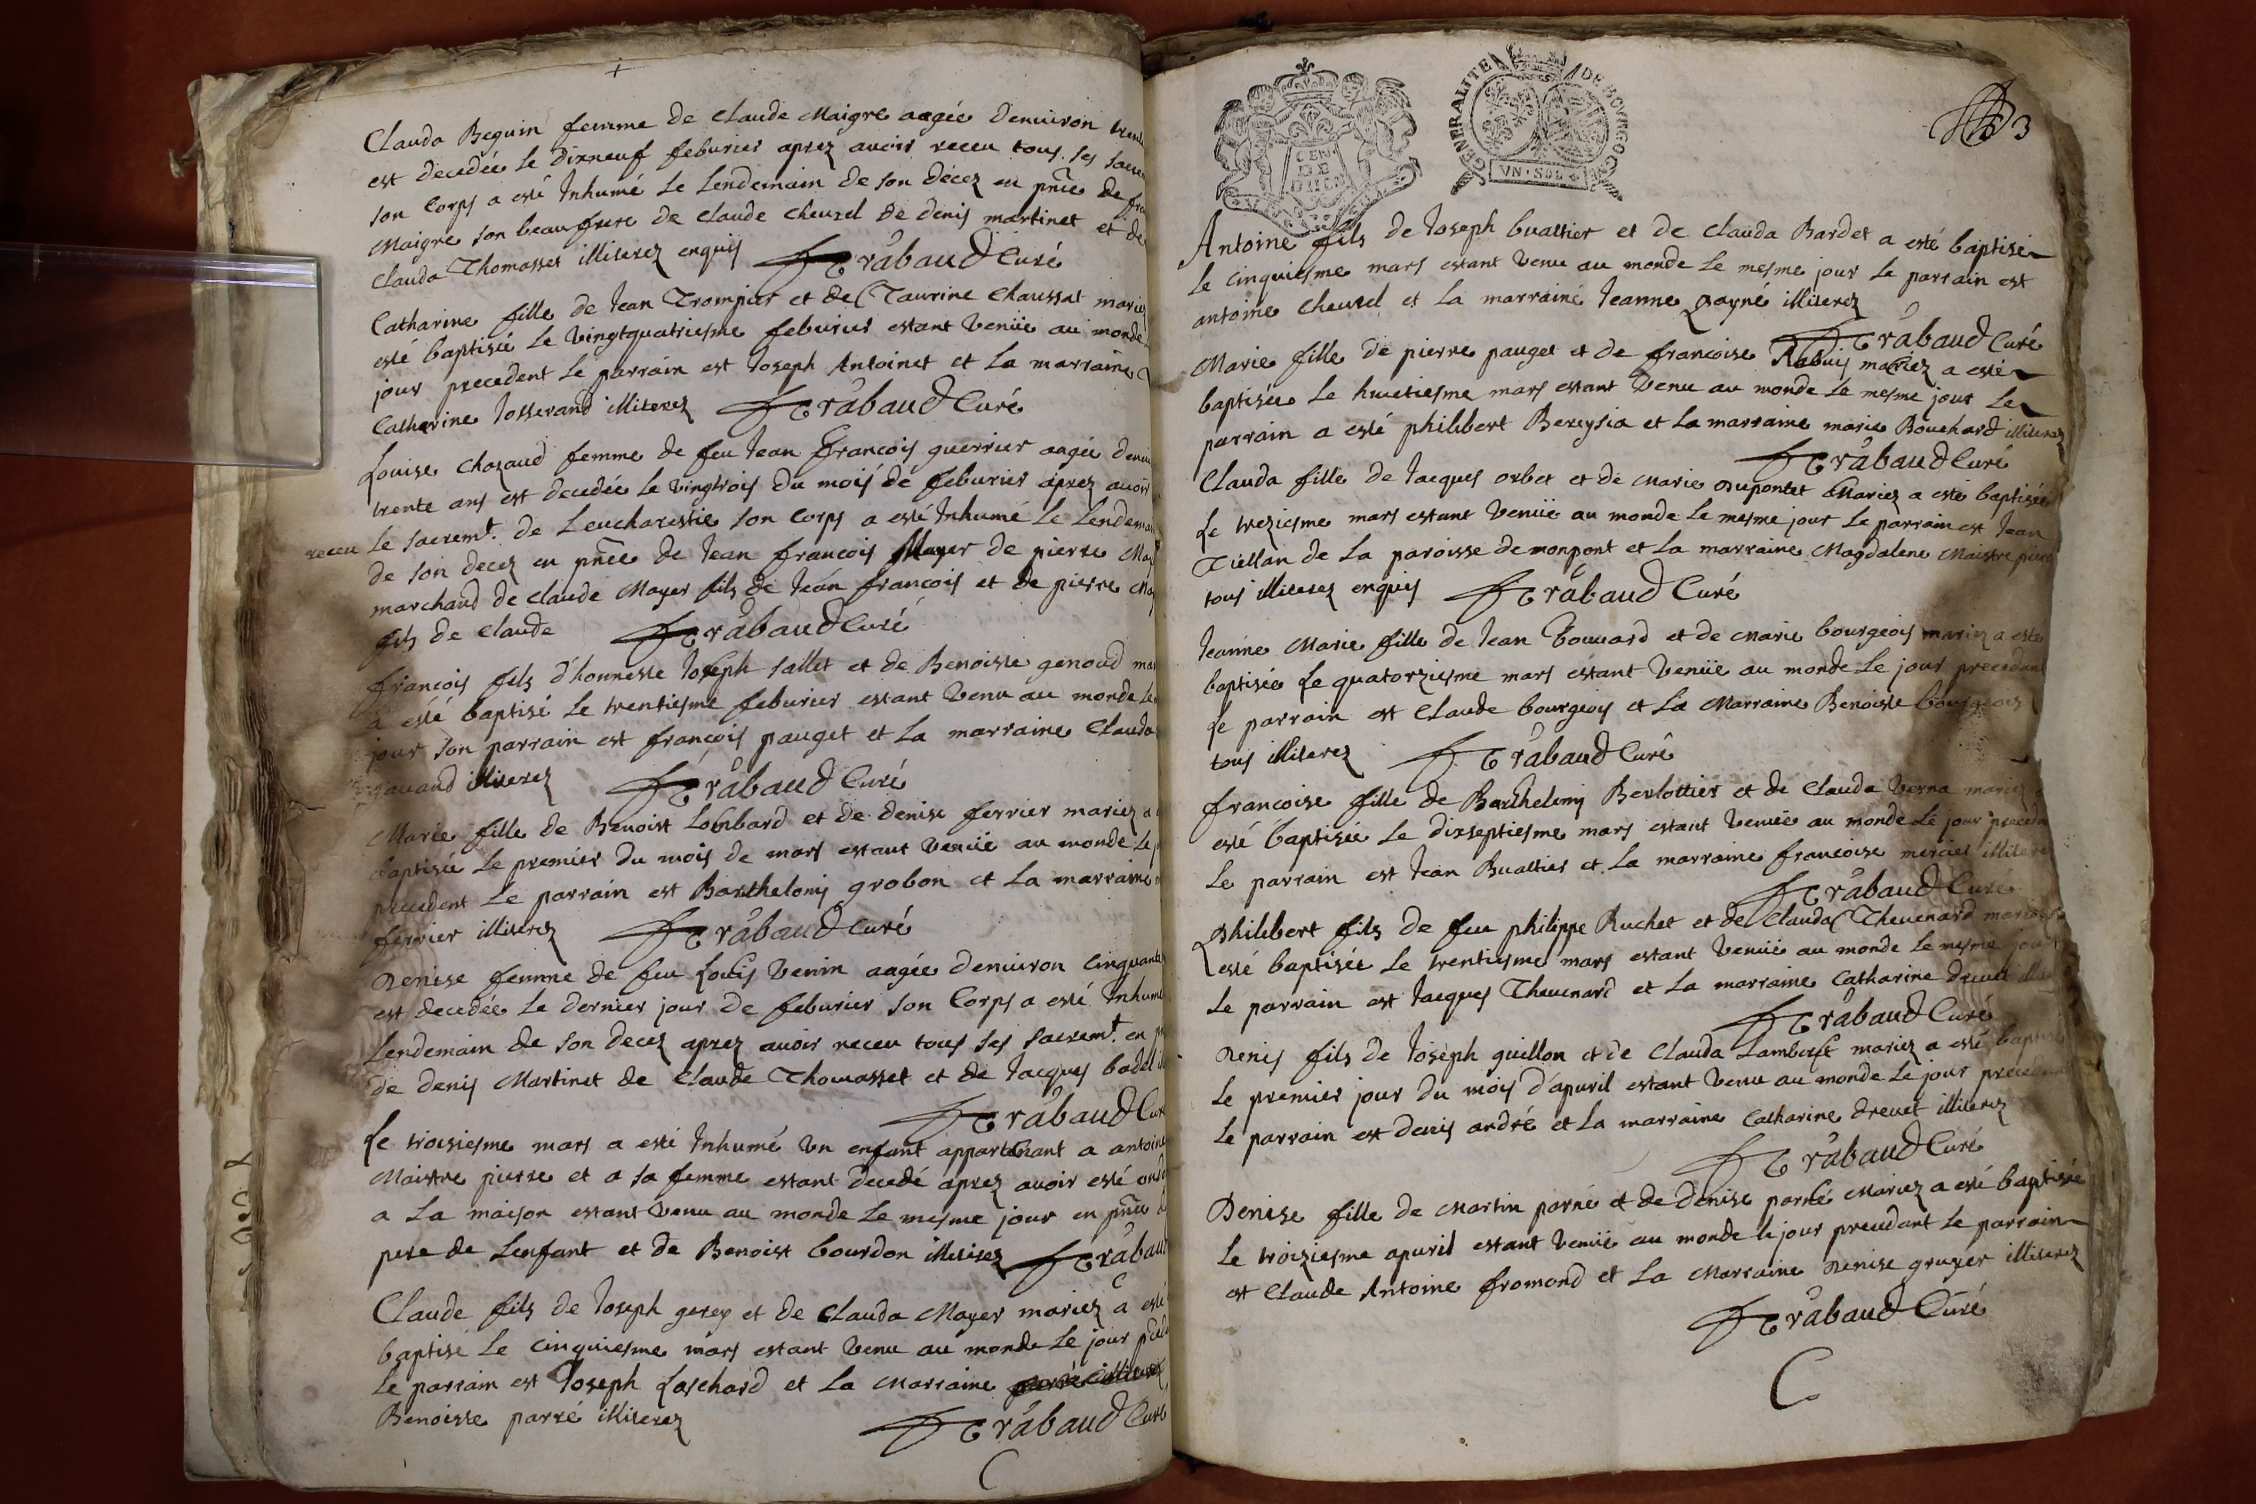 Clauda Beguin femme de claude Maigre aagée denuiron
est decedée le dixneuf feburier aprez auoir receu tous ses
son Corps a esté Inhumé Le Lendemain de son décez en pñce de
Maigre son beaufrere de claude cheurel de denis martinet et de
Clauda Thomasset illiterez enquis Trabaud Curé
Catharine fille de Jean Trompier et de Taurine Chaussat mariez
esté baptisée Le vingtquatriesme feburier estant venüe au monde
jour precedent Le parrain est Joseph Antoinet et La marraine
Catherine Josserand illiterez Trabaud Curé
Louise Chazaud femme de feu Jean francois guerrier aagée
trente ans est decedée Le vingtrois du mois de feburier aprez auoir
receu Le sacremt. de Leucharestie son Corps a esté Inhumé Le
de son decez en pñce de Jean francois Mayer de pierre
marchand de claude Mayer fils de Jean francois et de pierre
fils de claude Trabaud Curé
françois fils d'honneste Joseph sallet et de Benoiste genoud
a esté baptisé Le trentiesme feburier estant venu au monde
jour son parrain est françois pauget et La marraine Clauda
illiterez Trabaud Curé
Marie fille de Benoist Lombard et de denise ferrier mariez a
baptisée Le premier du mois de mars estant venüe au monde Le
precedent Le parrain est Barthelomy grobon et La marraine
ferrier illiterez Trabaud Curé
Denise femme de feu Louis Venin aagée denuiron Cinquante
est decedée Le dernier jour de feburier son Corps a esté Inhumé
Lendemain de son decez aprez auoir receu tous ses sacremt. en
de denis Martinet de Claude Thomasset et de Jacques badel
Trabaud
Le troisiesme mars a esté Inhumé Vn enfant appartenant a antoine
Maistre pierre et a sa femme estant decedé aprez auoir esté
a La maison estant venu au monde Le mesme jour en pñce
pere de Lenfant et de Benoist bourdon illiterez Trabaud
Claude fils de Joseph gerey et de Clauda Mayer mariez a esté
baptisé Le cinquiesme mars estant venu au monde Le jour
Le parrain est Joseph Larchard et La Marraine
Benoiste parré illiterez Trabaud Curé
C
GENERALITE DE BOVRGOG
VN·SOL
3
Antoine fils de Joseph buattier et de clauda Bardet a esté baptisé
Le cinquiesme mars estant venu au monde Le mesme jour Le parrain est
antoine cheurel et La marraine Jeanne payné illiterez
Trabaud Curé
Marie fille de pierre pauget et de francoise Rabuis mariez a esté
baptisée Le huictiesme mars estant venu au monde Le mesme jour Le
parrain a esté philibert Bereysia et La marraine marie Bouchard illiterez
Trabaud Curé
Clauda fille de Jacques orbet et de Marie dupontet Mariez a esté baptisée
Le treziesme mars estant venüe au monde Le mesme jour Le parrain est Jean
Tiellan de La paroisse de monpont et La marraine Magdalene Maistre pierre
tous illiterez enquis Trabaud Curé
Jeanne Marie fille de Jean Bouuard et de Marie bourgeois mariez a esté
baptisée Le quatorziesme mars estant venüe au monde Le jour precedant
Le parrain est Claude bourgeois et La Marraine Benoiste bourgeois
tous illiterez Trabaud Curé
francoise fille de Barthelemy Berlottier et de Clauda Verna mariez
esté baptisée Le dixseptiesme mars estant venüe au monde Le jour
Le parrain est Jean Buattier et La marraine francoise mercier
Trabaud Curé
Philibert fils de feu philippe Ruchet et de Clauda Theuenard
esté baptisée Le trentiesme mars estant venüe au monde Le mesme jour
Le parrain est Jacques Theuenard et La marraine Catharine dreuet
Trabaud Curé
Denis fils de Joseph guillon et de Clauda Lambert mariez a esté
Le premier jour du mois d'apuril estant venu au monde Le jour
Le parrain est denis andré et La marraine Catharine dreuet illiterez
Trabaud Curé
Denise fille de Martin parné et de denise Mariez a esté baptisée
Le troiziesme apuril estant venüe au monde le jour precedant Le parrain
est Claude Antoine fromond et La Marraine Denise gruyer illiterez
Trabaud Curé
C